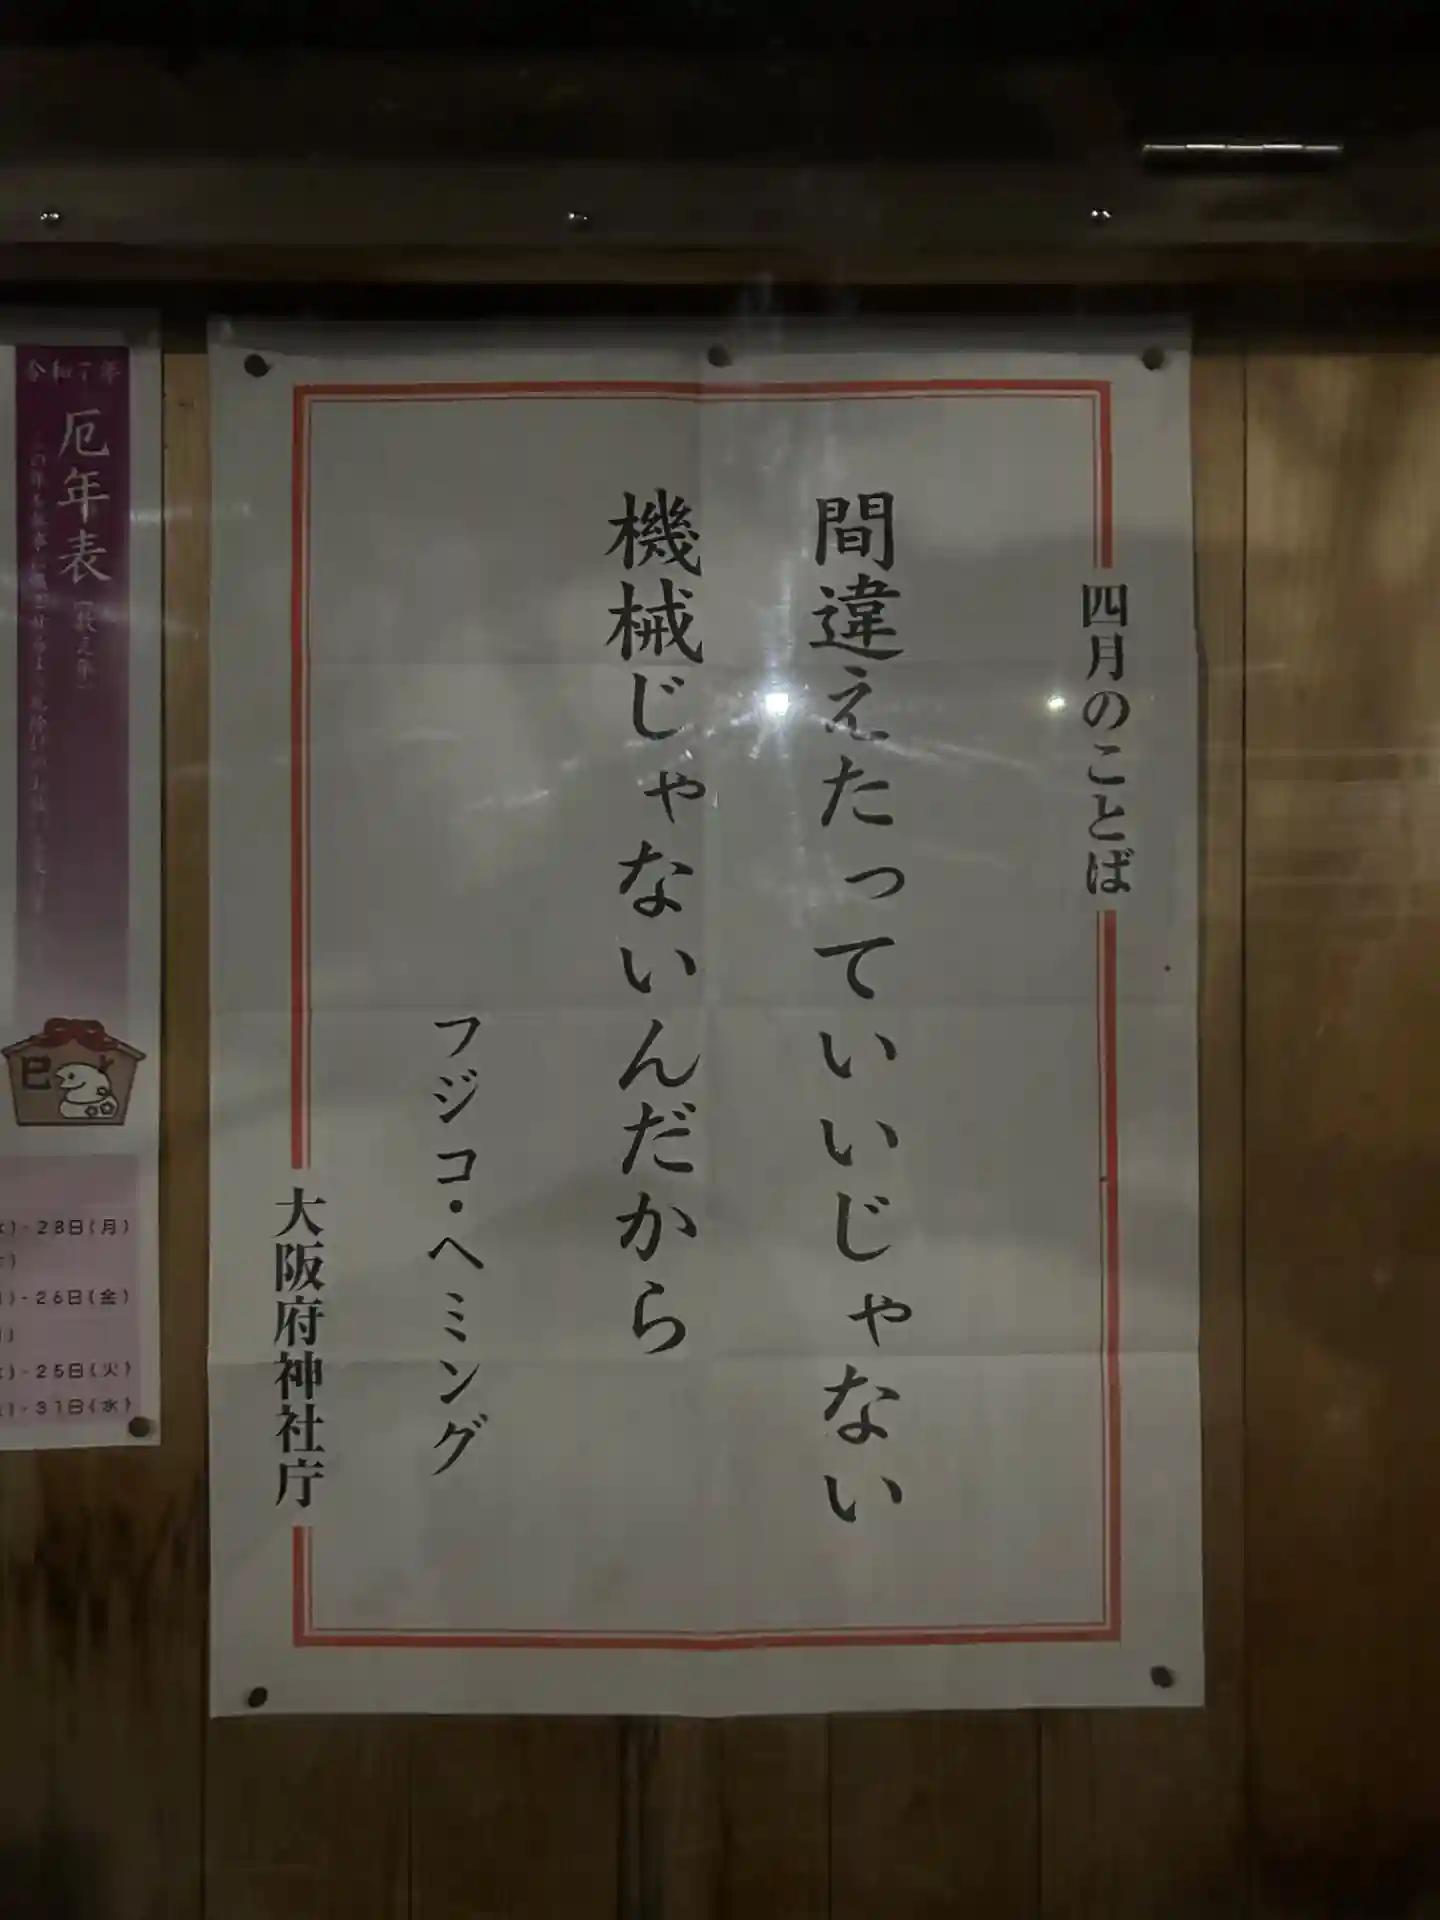 四月のことば
間違えたっていいじゃない
機械じゃないんだから
フジコ・ヘミング
大阪府神社庁
令和7年
厄年表(数え年)
巳
-28日(月)
-26日(金)
-25日(火)
-31日(水)